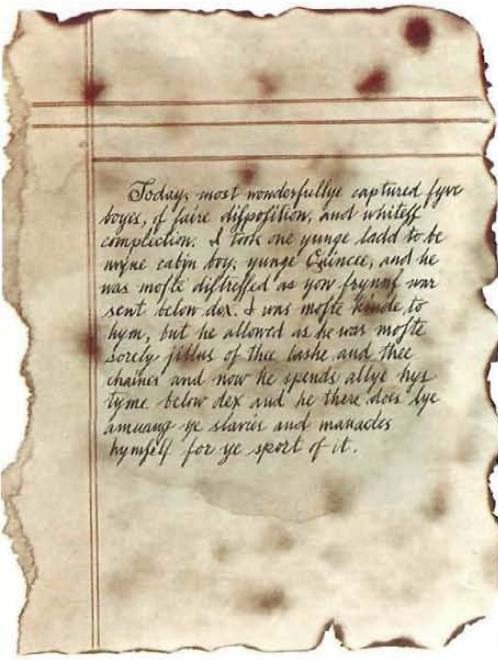 Today, most wonderfullye captured fyve
boyes, of faire difpofition, and whiteft
complection. I took one yunge ladd to be
myne cabin boy, yunge Quincee, and he
was mofte diftreffed as yow frynnf war
sent below dex. I was mofte kinde to
hym, but he allowed as he was mofte
sorely jillus of thee lashe and thee
chaines and now he spends allye hys
tyme below dex and he there does lye
amuang ye slavies and manacles
hymfelf for ye sport of it.